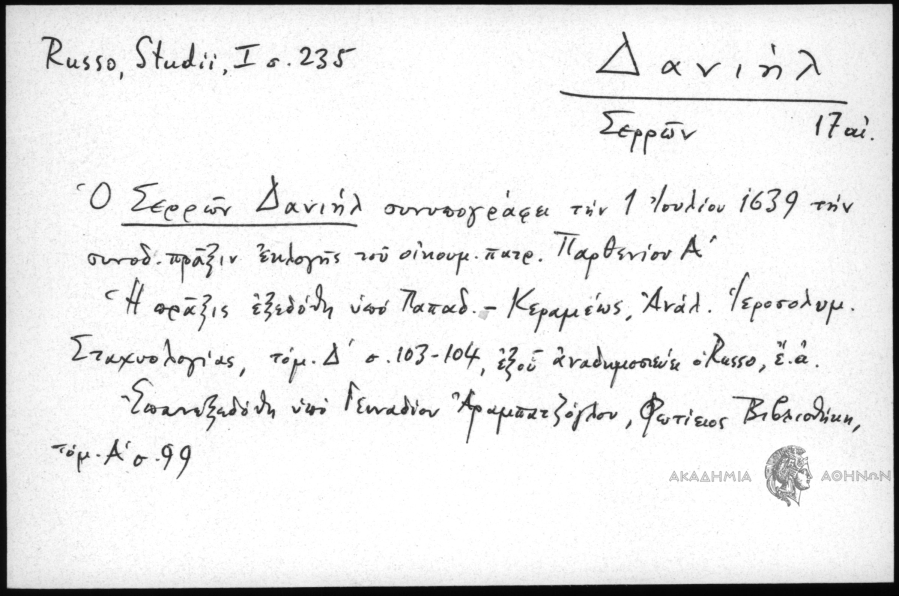 Russo, Studii, I σ. 235
Δανιήλ
Σερρῶν 17 αἰ.
Ὁ Σερρῶν Δανιήλ συνυπογράφει τήν 1 Ἰουλίου 1639 τήν
συνοδ. πρᾶξιν ἐκλογῆς τοῦ οἰκουμ. πατρ. Παρθενίου Α΄
Ἡ πρᾶξις ἐξεδόθη ὑπό Παπαδ. - Κεραμέως, Ἀνάλ. Ἱεροσολυμ.
Σταχυολογίας, τόμ. Δ΄ σ. 103-104, ἐξ οὗ ἀναδημοσιεύει ὁ Russo, ἔ.ἀ.
Ἐπανεξεδόθη ὑπό Γενναδίου Ἀραμπατζόγλου, Φωτίειος Βιβλιοθήκη,
τόμ. Α΄ σ. 99
ΑΚΑΔΗΜΙΑ ΑΘΗΝΩΝ